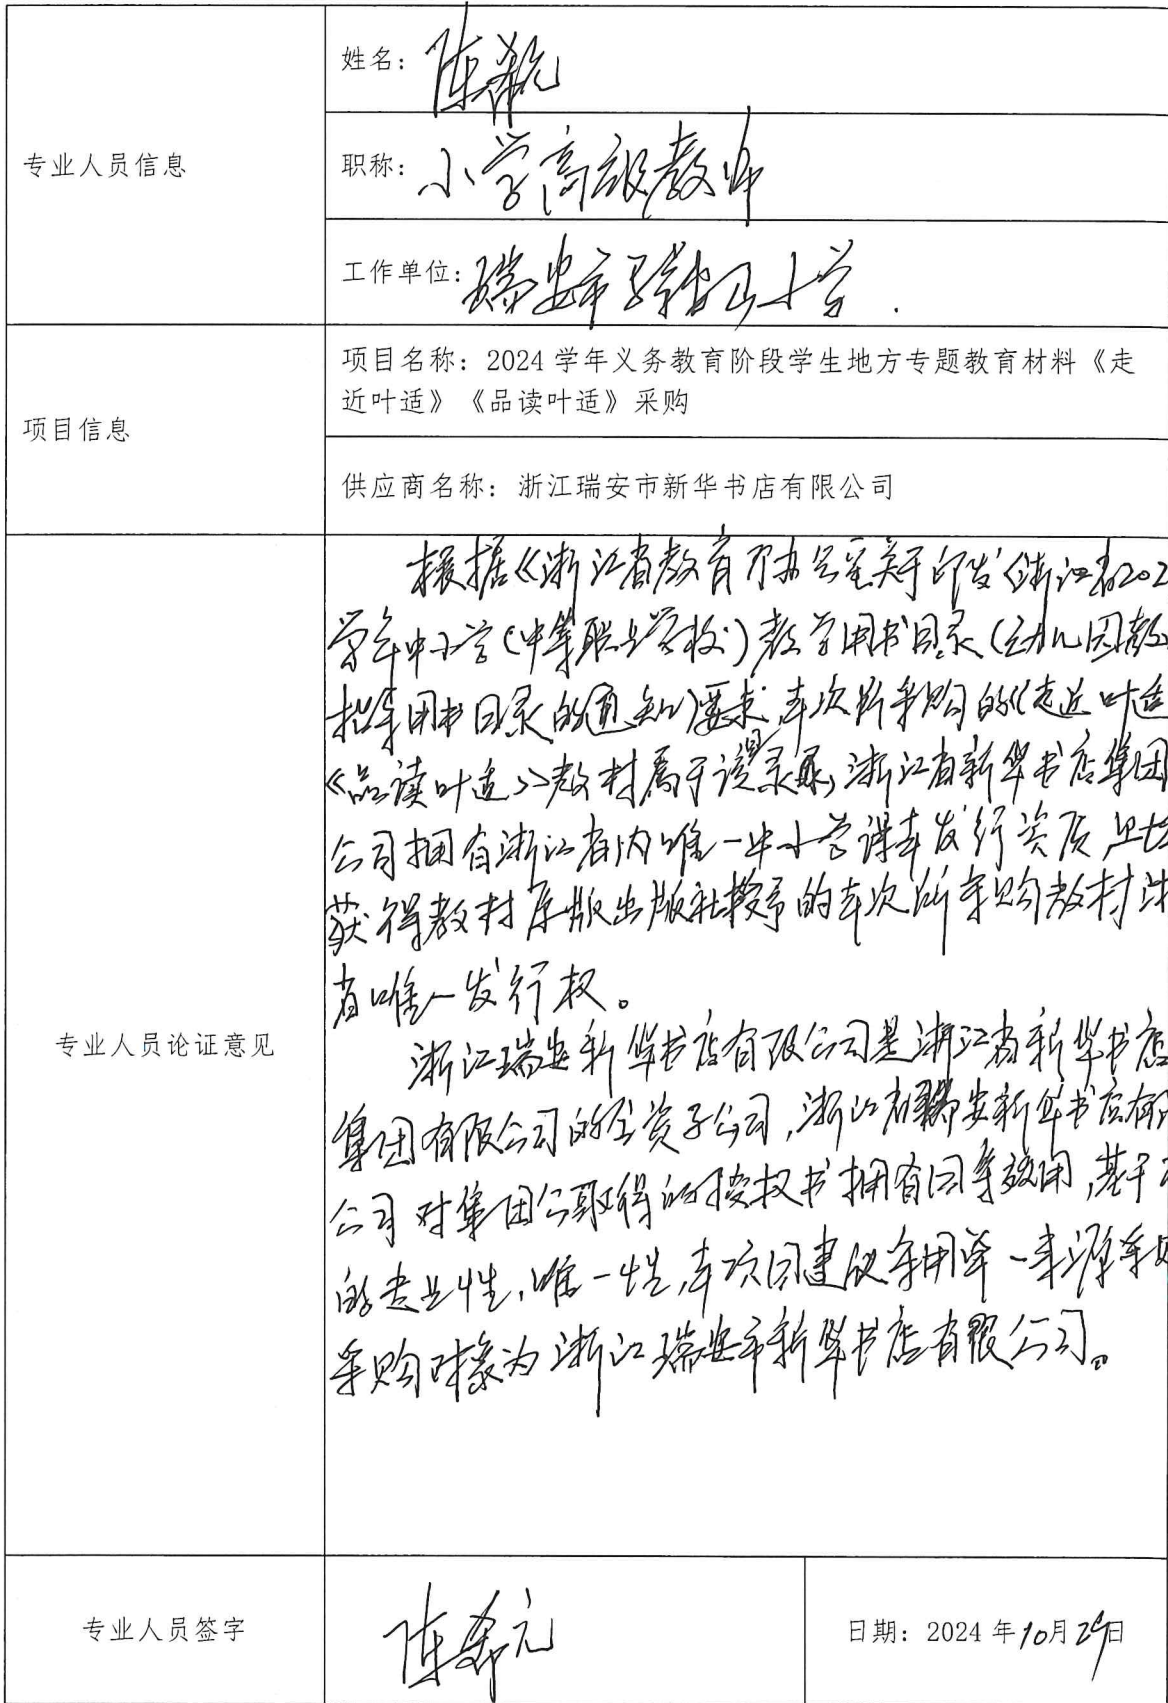 专业人员信息
姓名：陈希
职称：小学高级教师
工作单位：瑞安市马鞍山小学.
项目信息
项目名称：2024 学年义务教育阶段学生地方专题教育材料《走
近叶适》《品读叶适》采购
供应商名称：浙江瑞安市新华书店有限公司
专业人员论证意见
根据《浙江省教育厅办公室关于印发《浙江省202
学年中小学(中等职业学校)教学用书目录(幼儿园教
用书目录的通知》要求,本次所采购的《走近叶适
《品读叶适》教材属于该目录,浙江省新华书店集团
公司拥有浙江省内唯一中小学课本发行资质,且
获得教材原版出版社授予的本次所采购教材浙
省唯一发行权。
浙江瑞安新华书店有限公司是浙江省新华书店
集团有限公司的全资子公司,浙江省瑞安新华书店有限
公司对集团公司取得的授权书拥有同等效用,基于
的专业性,唯一性,本项目建议采用单一来源采购
采购对象为浙江瑞安市新华书店有限公司。
专业人员签字
陈希元
日期：2024 年10月29日